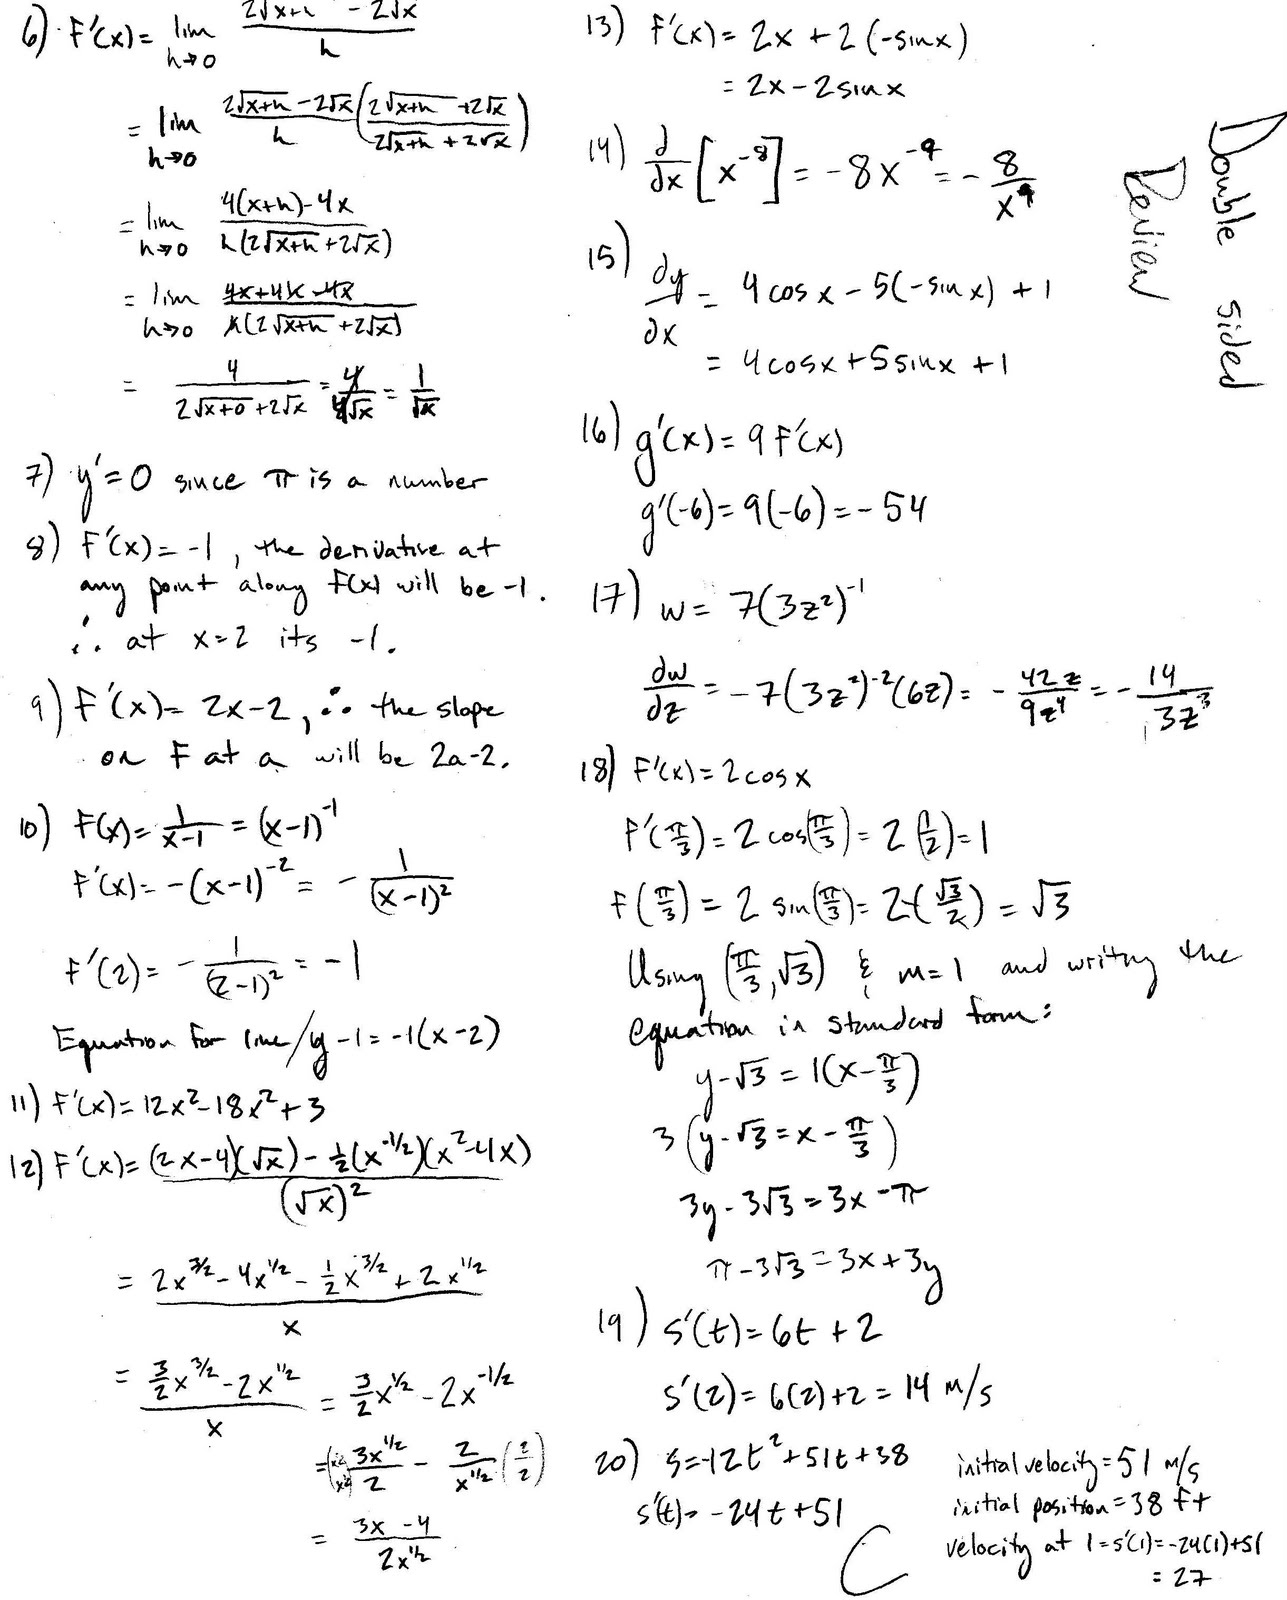 6) F'(x) = lim h→0 (2√x+h - 2√x)/h
= lim h→0 (2√x+h - 2√x)/h ((2√x+h + 2√x)/(2√x+h + 2√x))
= lim h→0 (4(x+h) - 4x)/(h(2√x+h + 2√x))
= lim h→0 (4x+4h-4x)/(h(2√x+h + 2√x))
= 4/(2√x+0 + 2√x) = 4/(4√x) = 1/√x
7) y' = 0 since π is a number
8) F'(x) = -1, the derivative at
any point along F(x) will be -1.
∴ at x=2 its -1.
9) F'(x) = 2x-2, ∴ the slope
on F at a will be 2a-2.
10) F(x) = 1/(x-1) = (x-1)^-1
F'(x) = -(x-1)^-2 = -1/(x-1)^2
F'(2) = -1/(2-1)^2 = -1
Equation for line / y-1 = -1(x-2)
11) F'(x) = 12x^2 - 18x^2 + 3
12) F'(x) = ((2x-4)(√x) - 1/2(x^-1/2)(x^2-4x))/(√x)^2
= (2x^3/2 - 4x^1/2 - 1/2 x^3/2 + 2x^1/2)/x
= (3/2 x^3/2 - 2x^1/2)/x = 3/2 x^1/2 - 2x^-1/2
= 3x^1/2/2 - 2/x^1/2 (2/2)
= (3x-4)/(2x^1/2)
13) F'(x) = 2x + 2(-sinx)
= 2x - 2sinx
14) d/dx [x^-8] = -8x^-9 = -8/x^9
15) dy/dx = 4cosx - 5(-sinx) + 1
= 4cosx + 5sinx + 1
16) g'(x) = 9F'(x)
g'(-6) = 9(-6) = -54
17) w = 7(3z^2)^-1
dw/dz = -7(3z^2)^-2(6z) = -42z/9z^4 = -14/3z^3
18) F'(x) = 2cosx
F'(π/3) = 2cos(π/3) = 2(1/2) = 1
F(π/3) = 2 sin(π/3) = 2·(√3/2) = √3
Using (π/3, √3) & m=1 and writing the
equation in standard form:
y-√3 = 1(x-π/3)
3(y-√3 = x-π/3)
3y-3√3 = 3x-π
π-3√3 = 3x+3y
19) s'(t) = 6t + 2
s'(2) = 6(2)+2 = 14 m/s
20) s=-12t^2+51t+38
s'(t) = -24t+51
initial velocity = 51 m/s
initial position = 38 ft
velocity at 1 = s'(1) = -24(1)+51
= 27
Double sided
Review